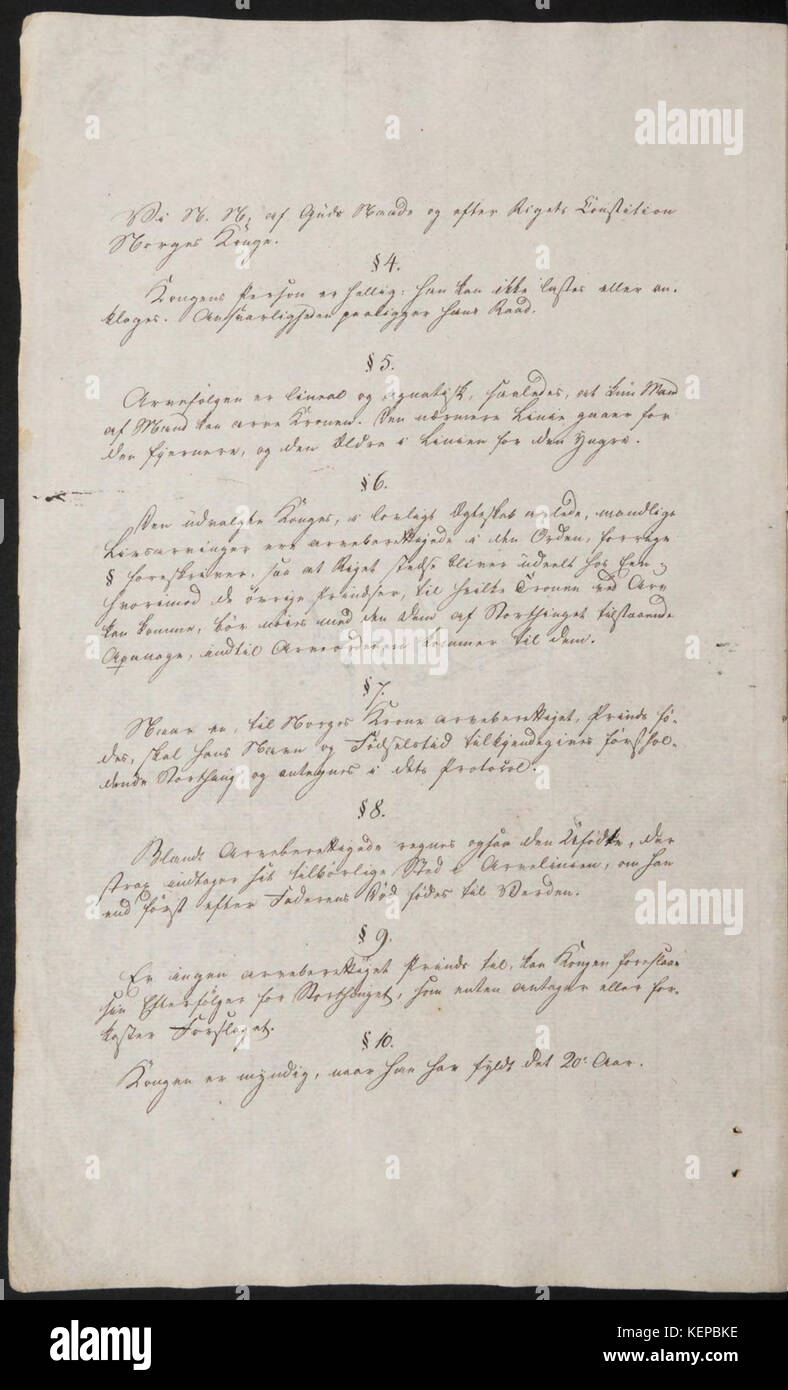 Vi N. N., af Guds Naade og efter Rigets Constition
Norges Konge.
§ 4.
Kongens Person er hellig: han kan ikke lastes eller an-
klages. Ansvarligheden paaligger hans Raad.
§ 5.
Arvefølgen er lineal og agnatisk, saaledes, at kun Mand
af Mand kan arve Kronen. Den nærmere Linie gaaer for
den fjernere, og den Ældre i Linien for den Yngre.
§ 6.
Den udvalgte Konges, i lovligt Ægteskab avlede, mandlige
Livsarvinger ere arveberettigede i den Orden, forrige
§ foreskriver, saa at Riget stedse bliver udeelt hos Een,
hvorimod de øvrige Prindser, til hvilke Kronen ved Arv
kan komme, bør nøies med den dem af Storthinget tilstaaende
Apanage, indtil Arveordenen kommer til dem.
§ 7.
Naar en, til Norges Krone arveberettiget, Prinds fø-
des, skal hans Navn og Fødselstid tilkjendegives førsthol-
dende Storthing og antegnes i dets Protocol.
§ 8.
Blandt Arveberettigede regnes ogsaa den Ufødte, der
strax indtager sit tilbørlige Sted i Arvelinien, om han
end først efter Faderens Død fødes til Verden.
§ 9.
Er ingen arveberettiget Prinds til, kan Kongen foreslaae
sin Efterfølger for Storthinget, som enten antager eller for-
kaster Forslaget.
§ 10.
Kongen er myndig, naar han har fyldt det 20de Aar.
alamy
a
alamy
Image ID: KEPBKE
www.alamy.com